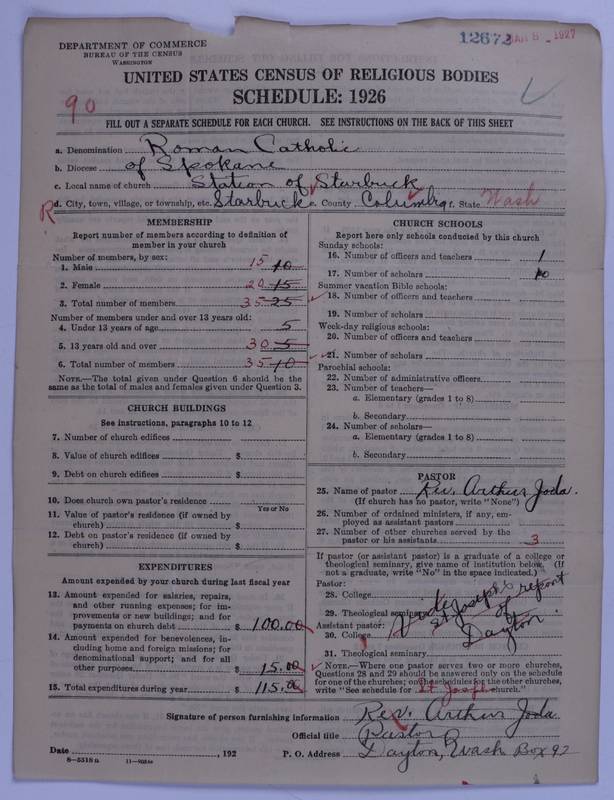 DEPARTMENT OF COMMERCE
BUREAU OF THE CENSUS
WASHINGTON
12672 MAR 8 - 1927
UNITED STATES CENSUS OF RELIGIOUS BODIES
SCHEDULE: 1926
90
FILL OUT A SEPARATE SCHEDULE FOR EACH CHURCH. SEE INSTRUCTIONS ON THE BACK OF THIS SHEET
a. Denomination Roman Catholic
b. Diocese of Spokane
c. Local name of church Station of Starbuck
R d. City, town, village, or township, etc. Starbuck e. County Columbia f. State Wash
MEMBERSHIP
Report number of members according to definition of
member in your church
Number of members, by sex:
1. Male 15 10
2. Female 20 15
3. Total number of members 35 25
Number of members under and over 13 years old:
4. Under 13 years of age 5
5. 13 years old and over 30 5
6. Total number of members 35 10
NOTE.—The total given under Question 6 should be
same as the total of males and females given under Question 3.
CHURCH BUILDINGS
See instructions, paragraphs 10 to 12
7. Number of church edifices
8. Value of church edifices $
9. Debt on church edifices $
10. Does church own pastor's residence
Yes or No
11. Value of pastor's residence (if owned by
church) $
12. Debt on pastor's residence (if owned by
church) $
EXPENDITURES
Amount expended by your church during last fiscal year
13. Amount expended for salaries, repairs,
and other running expenses; for im-
provements or new buildings; and for
payments on church debt $ 100.00
14. Amount expended for benevolences, in-
cluding home and foreign missions; for
denominational support; and for all
other purposes $ 15.00
15. Total expenditures during year $ 115.00
CHURCH SCHOOLS
Report here only schools conducted by this church
Sunday schools:
16. Number of officers and teachers 1
17. Number of scholars 10
Summer vacation Bible schools:
18. Number of officers and teachers
19. Number of scholars
Week-day religious schools:
20. Number of officers and teachers
21. Number of scholars
Parochial schools:
22. Number of administrative officers
23. Number of teachers—
a. Elementary (grades 1 to 8)
b. Secondary
24. Number of scholars—
a. Elementary (grades 1 to 8)
b. Secondary
PASTOR
25. Name of pastor Rev. Arthur Joda.
(If church has no pastor, write "None")
26. Number of ordained ministers, if any, em-
ployed as assistant pastors
27. Number of other churches served by the
pastor or his assistants 3
If pastor (or assistant pastor) is a graduate of a college or
theological seminary, give name of institution below. (If
not a graduate, write "No" in the space indicated.)
Pastor:
28. College
29. Theological seminary
Assistant pastor:
30. College
31. Theological seminary
Vide St Josephs report
of
Dayton.
NOTE.—Where one pastor serves two or more churches,
Questions 28 and 29 should be answered only on the schedule
for one of the churches; on the schedules for the other churches,
write "See schedule for St Joseph church."
Signature of person furnishing information Rev. Arthur Joda
Official title Pastor
Date , 192 P. O. Address Dayton, Wash Box 92
8-5518a 11-9554c